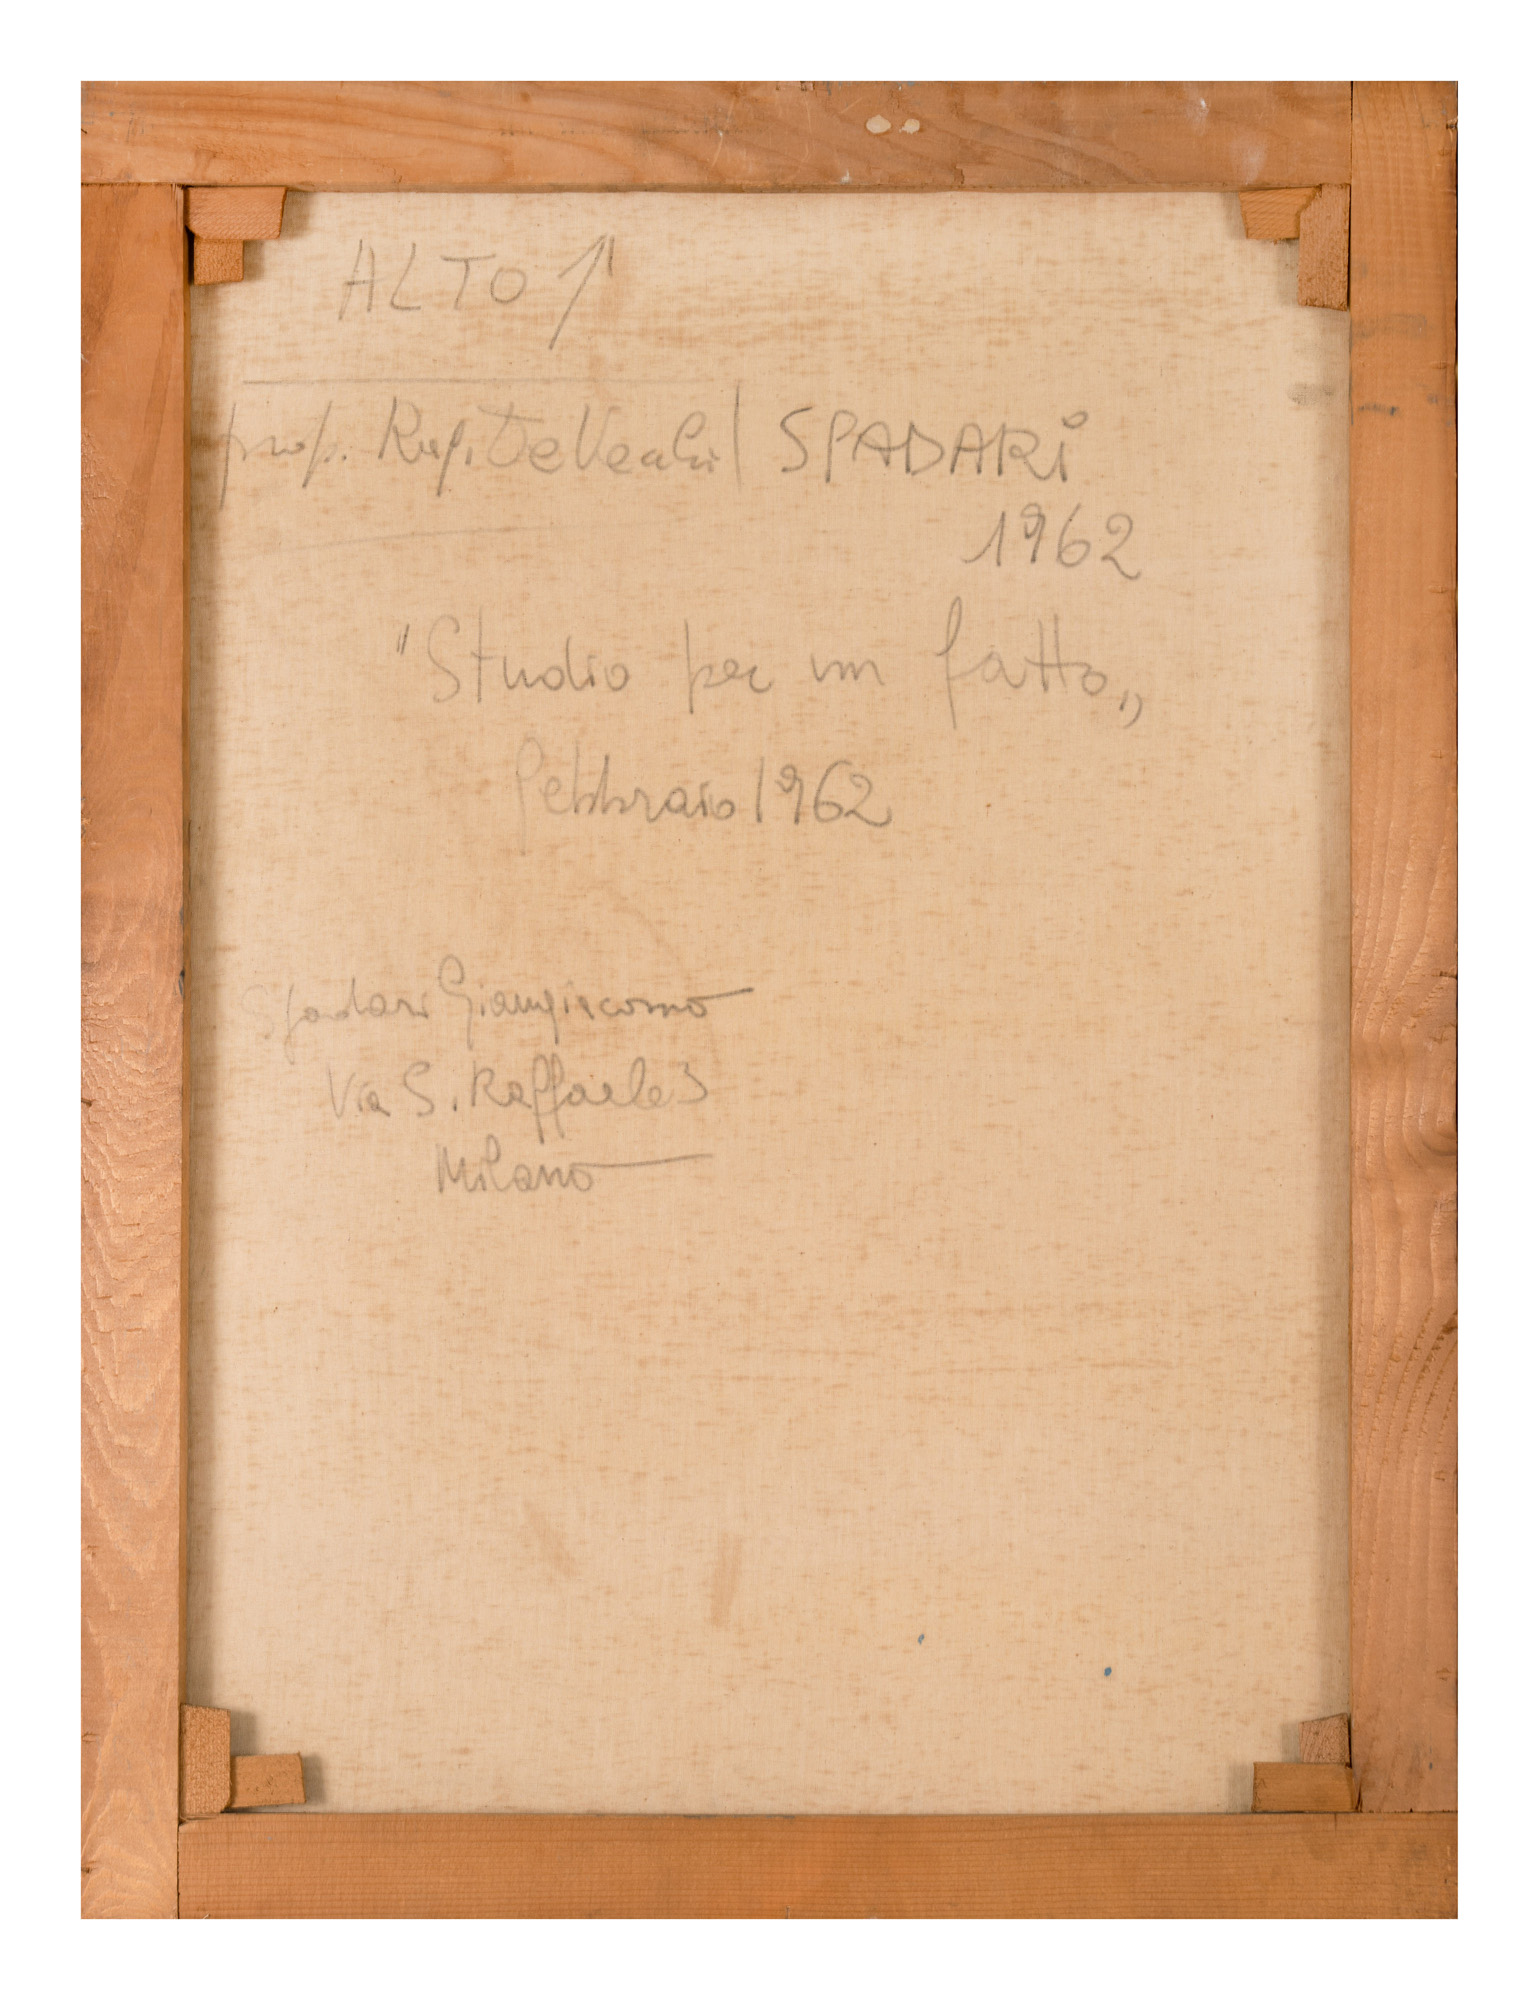 ALTO ↑
prop. De Vecchi | SPADARi
1962
"Studio per un fatto„
febbraio 1962
Spadari Giangiacomo
Via S. Raffaele 3
Milano